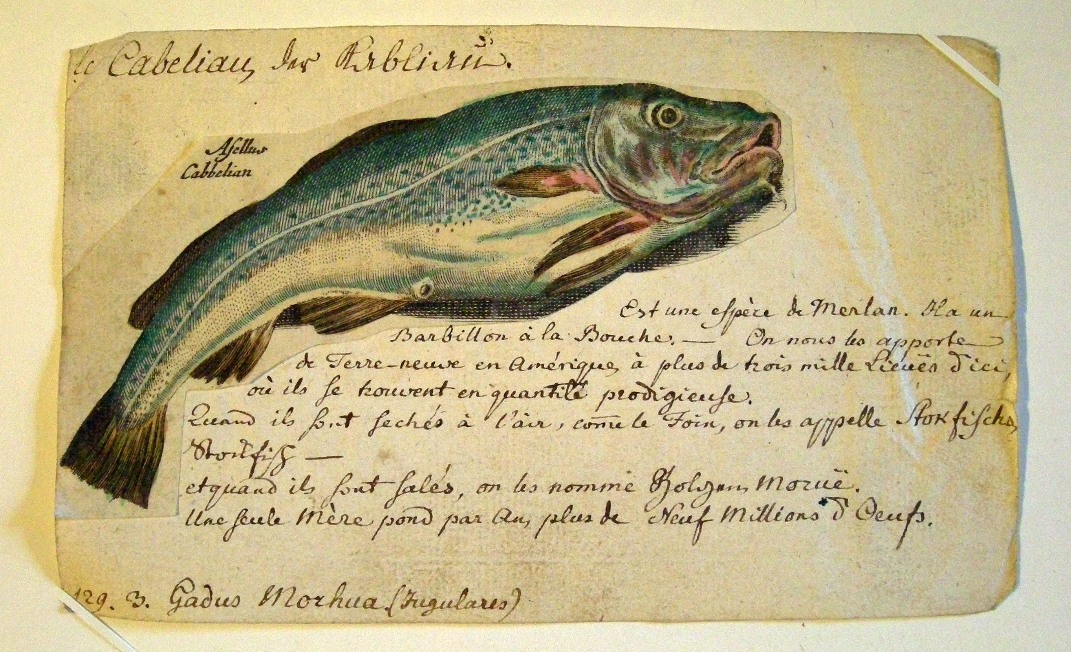 le Cabeliau, der Kabliau.
Asellus
Cabbelian
Est une espèce de Merlan. Il a un
Barbillon à la Bouche. — On nous les apporte
de Terre-neuve en Amérique, à plus de trois mille Lieuës d'ici,
où ils se trouvent en quantité prodigieuse.
Quand ils sont sechés à l'air, com̄e le Foin, on les appelle Stokfischs,
Stockfisch —
et quand ils sont salés, on les nomme Moruë.
Une seule Mère pond par An, plus de Neuf Millions d'Oeufs.
129. 3. Gadus Morhua (Jugulares)